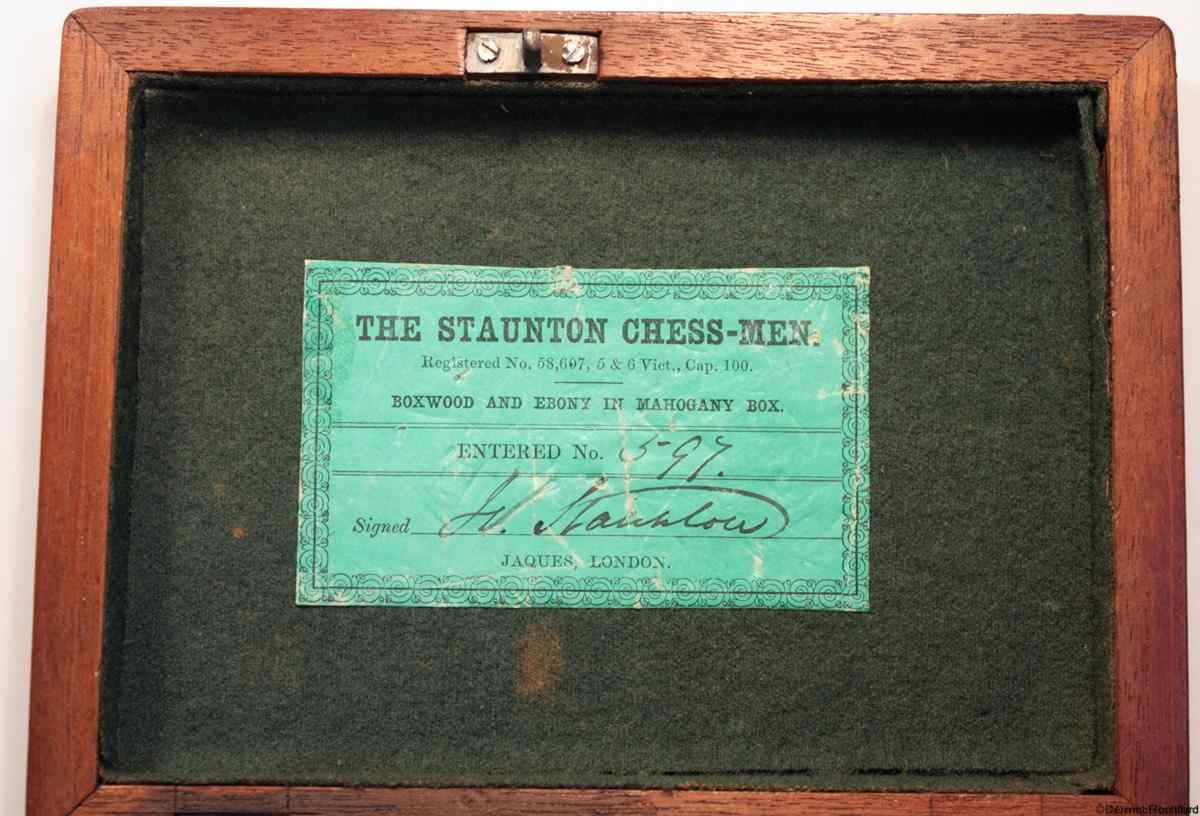 THE STAUNTON CHESS-MEN.
Registered No. 58,607, 5 & 6 Vict., Cap. 100.
BOXWOOD AND EBONY IN MAHOGANY BOX.
ENTERED No. 597.
Signed H. Staunton
JAQUES, LONDON.